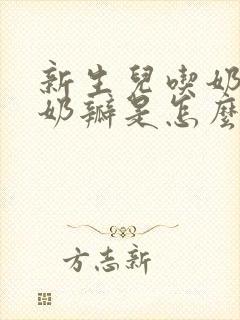 新生兒喫奶
奶瓣是怎麼
方志新